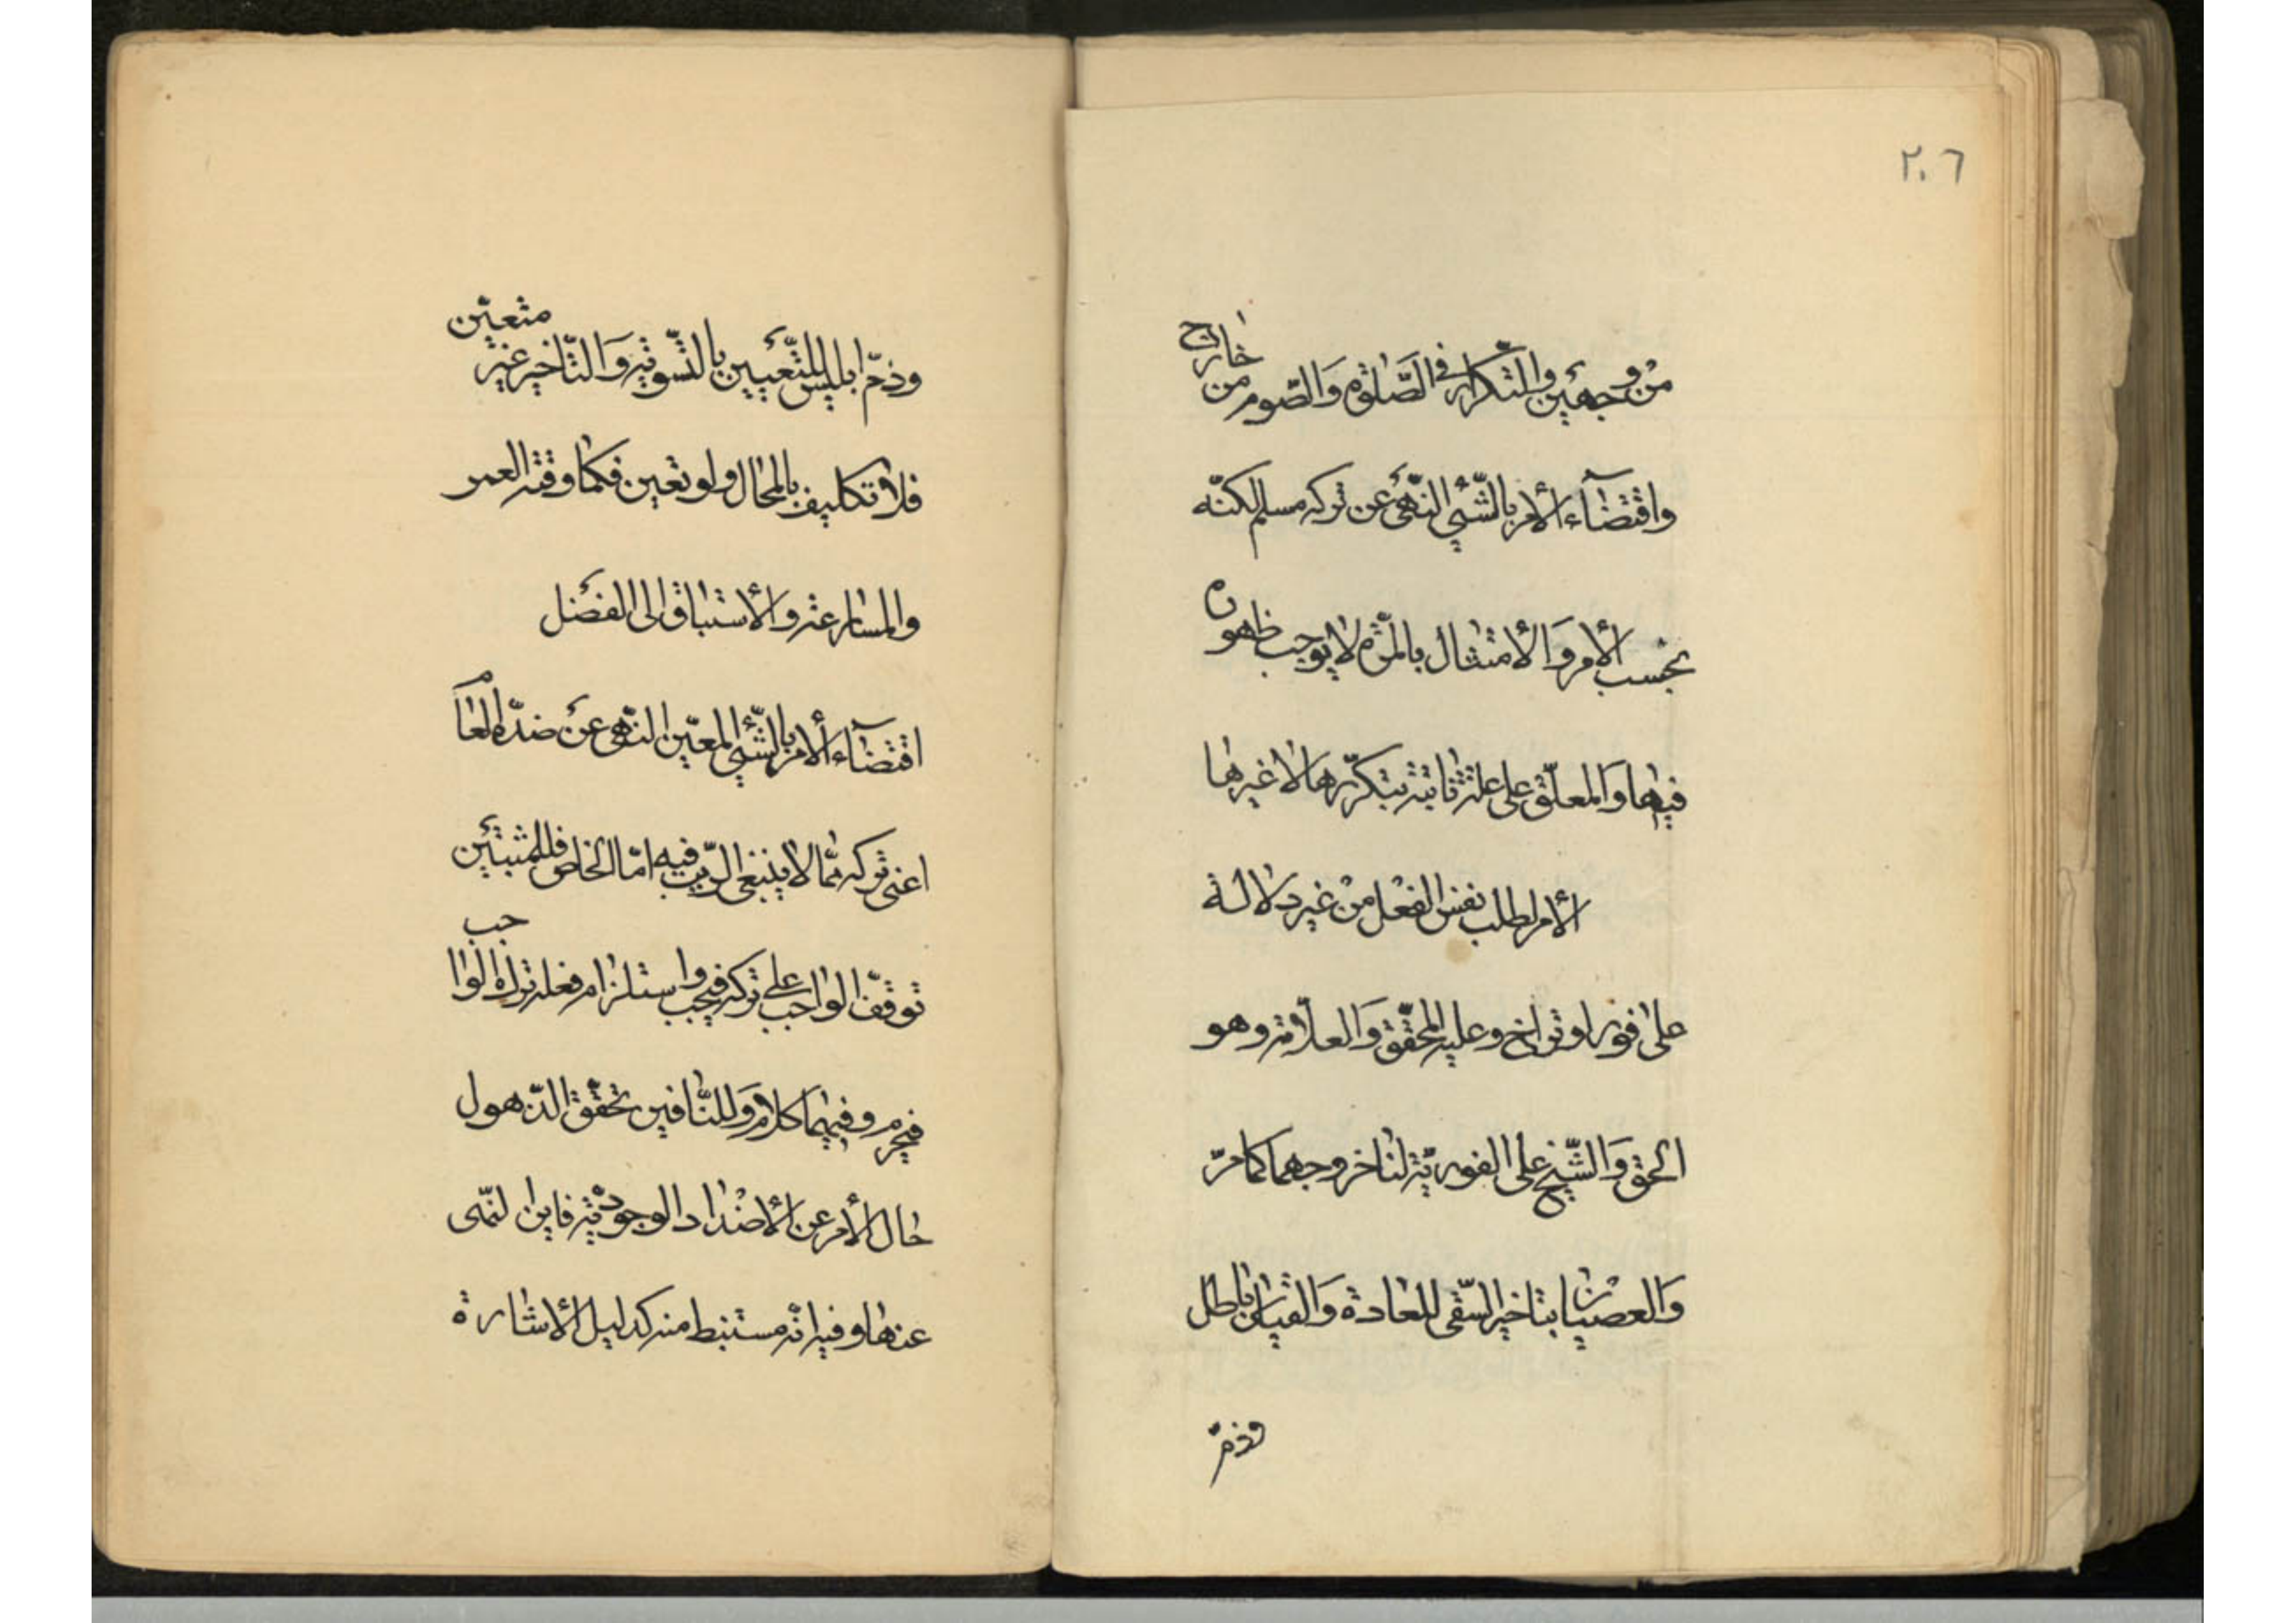 ٢٠٦
من وجهين والتكرار في الصلوة والصوم من خارج
واقتضآء الأمر بالشئ النهى عن تركه مسلم لكنّه
بحسب الأمر والأمتثال بالمرّة لا يوجب ظهوره
فيها والمعلّق على علة ثابتة يتكرّر بتكرّرها لا غيرها
الأمر لطلب نفس الفعل من غير دلالة
على فور او تراخ وعليه المحقّق والعلاّمة وهو
الحق والشّيخ على الفوريّة لنا خروجهما كما مرّ
والعصيان بتاخير السّقى للعادة والقياس باطل
وذمّ
وذمّ ابليس للتّعيين بالتّسوية والتّاخير غير متعيّن
فلا تكليف بالمحال ولو تعين فكما وقته العمر
والمسارعة والأستباق الى الفضل
اقتضآء الأمر بالشّئ المعيّن النّهى عن ضدّه العام
اعنى تركه ممّا لا ينبغى الرّيب فيه امّا الخاص فللمثبتين
توقّف الواجب على تركه فيجب واستلزام فعله ترك الواجب
فيحرم وفيهما كلام وللنّافين تحقّق الذّهول
حال الأمر عن الأضداد الوجوديّة فاين النّهى
عنها وفيه انّه مستنبط منه كدليل الأشارة